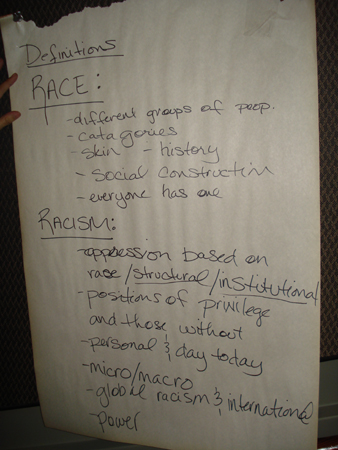 Definitions
RACE:
- different groups of peop.
- catagories
- skin - history
- social construction
- everyone has one
RACISM:
- oppression based on
race/structural/institutional
- positions of privilege
and those without
- personal & day today
- micro/macro
- global racism & international
- power